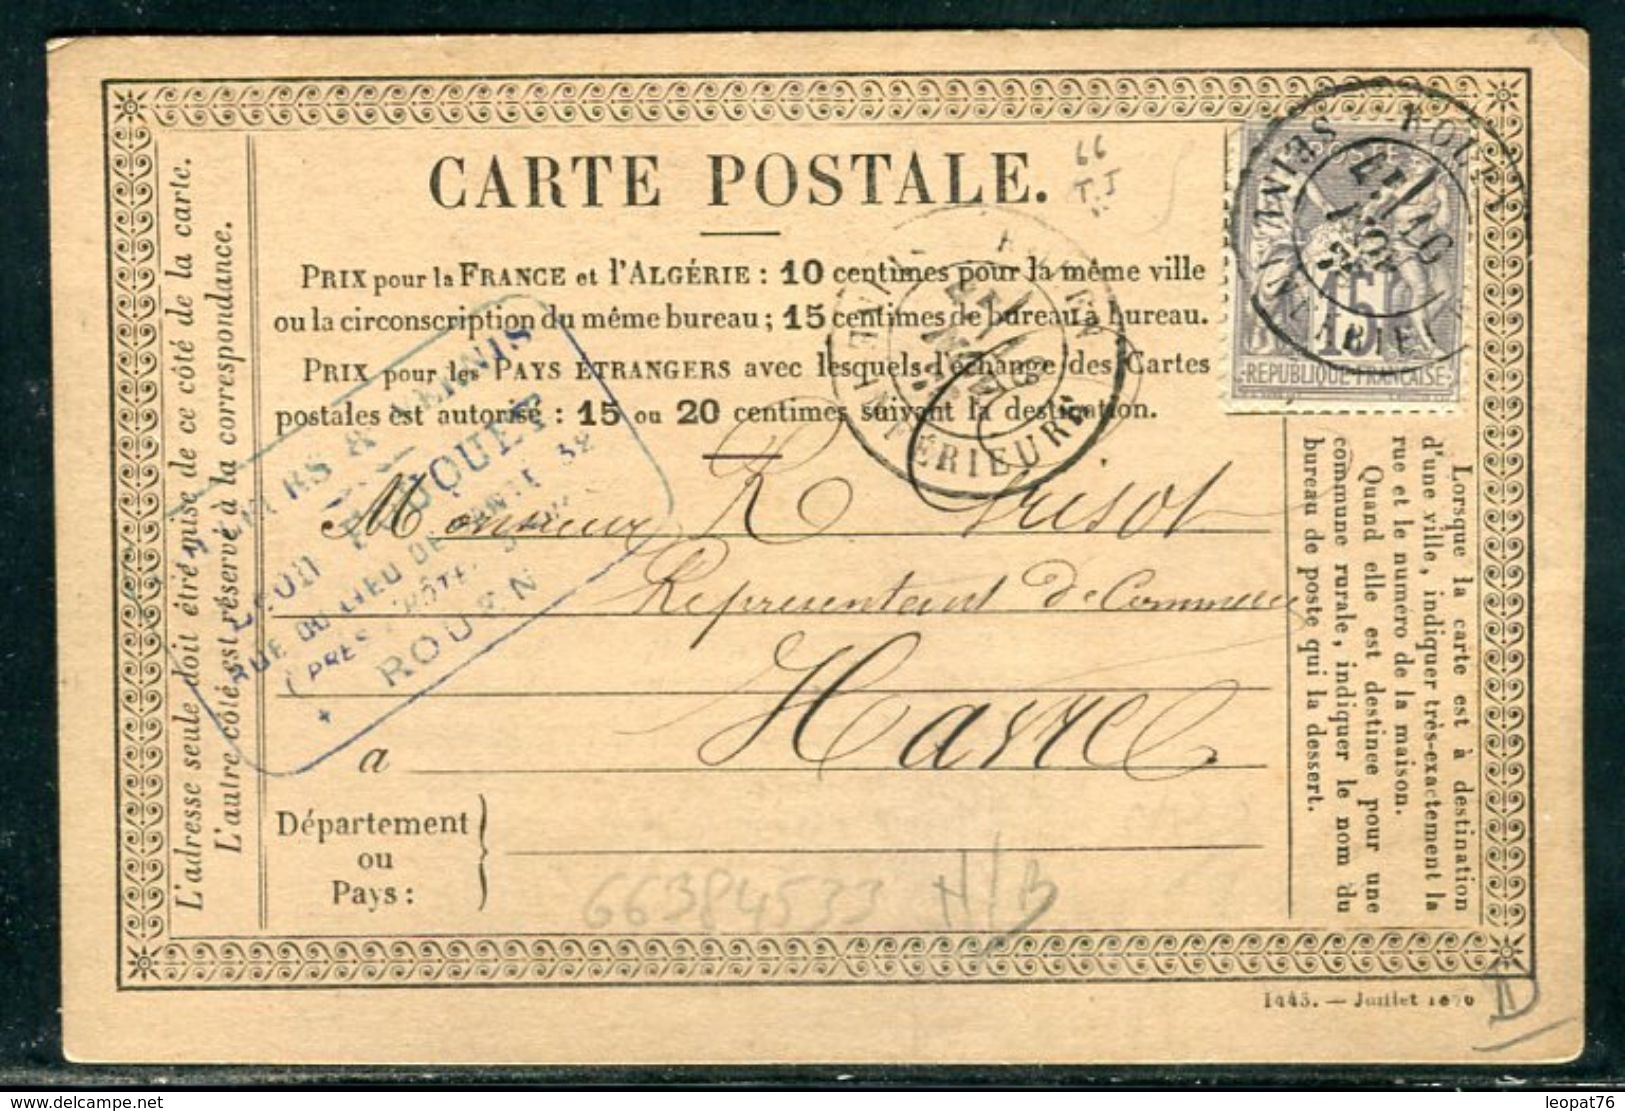 CARTE POSTALE.
66
T.J
PRIX pour la FRANCE et l'ALGÉRIE : 10 centimes pour la même ville
ou la circonscription du même bureau ; 15 centimes de bureau à bureau.
PRIX pour les PAYS ÉTRANGERS avec lesquels l'échange des Cartes
postales est autorisé : 15 ou 20 centimes suivant la destination.
ROUEN
SEINE INFÉRIEURE
15
REPUBLIQUE FRANÇAISE
ROUEN
SEINE INFÉRIEURE
& VERNIS
FOUQUET
RUE DU LIEU DE SANTÉ 32
ROUEN
Monsieur R
Représentant de Commerce
à Havre
Département
ou
Pays :
66384533 N/B
L'adresse seule doit être mise de ce côté de la carte.
L'autre côté est réservé à la correspondance.
Lorsque la carte est à destination
d'une ville, indiquer très-exactement la
rue et le numéro de la maison.
Quand elle est destinée pour une
commune rurale, indiquer le nom du
bureau de poste qui la dessert.
1443. — Juillet 1876
D
delcampe.net
leopat76